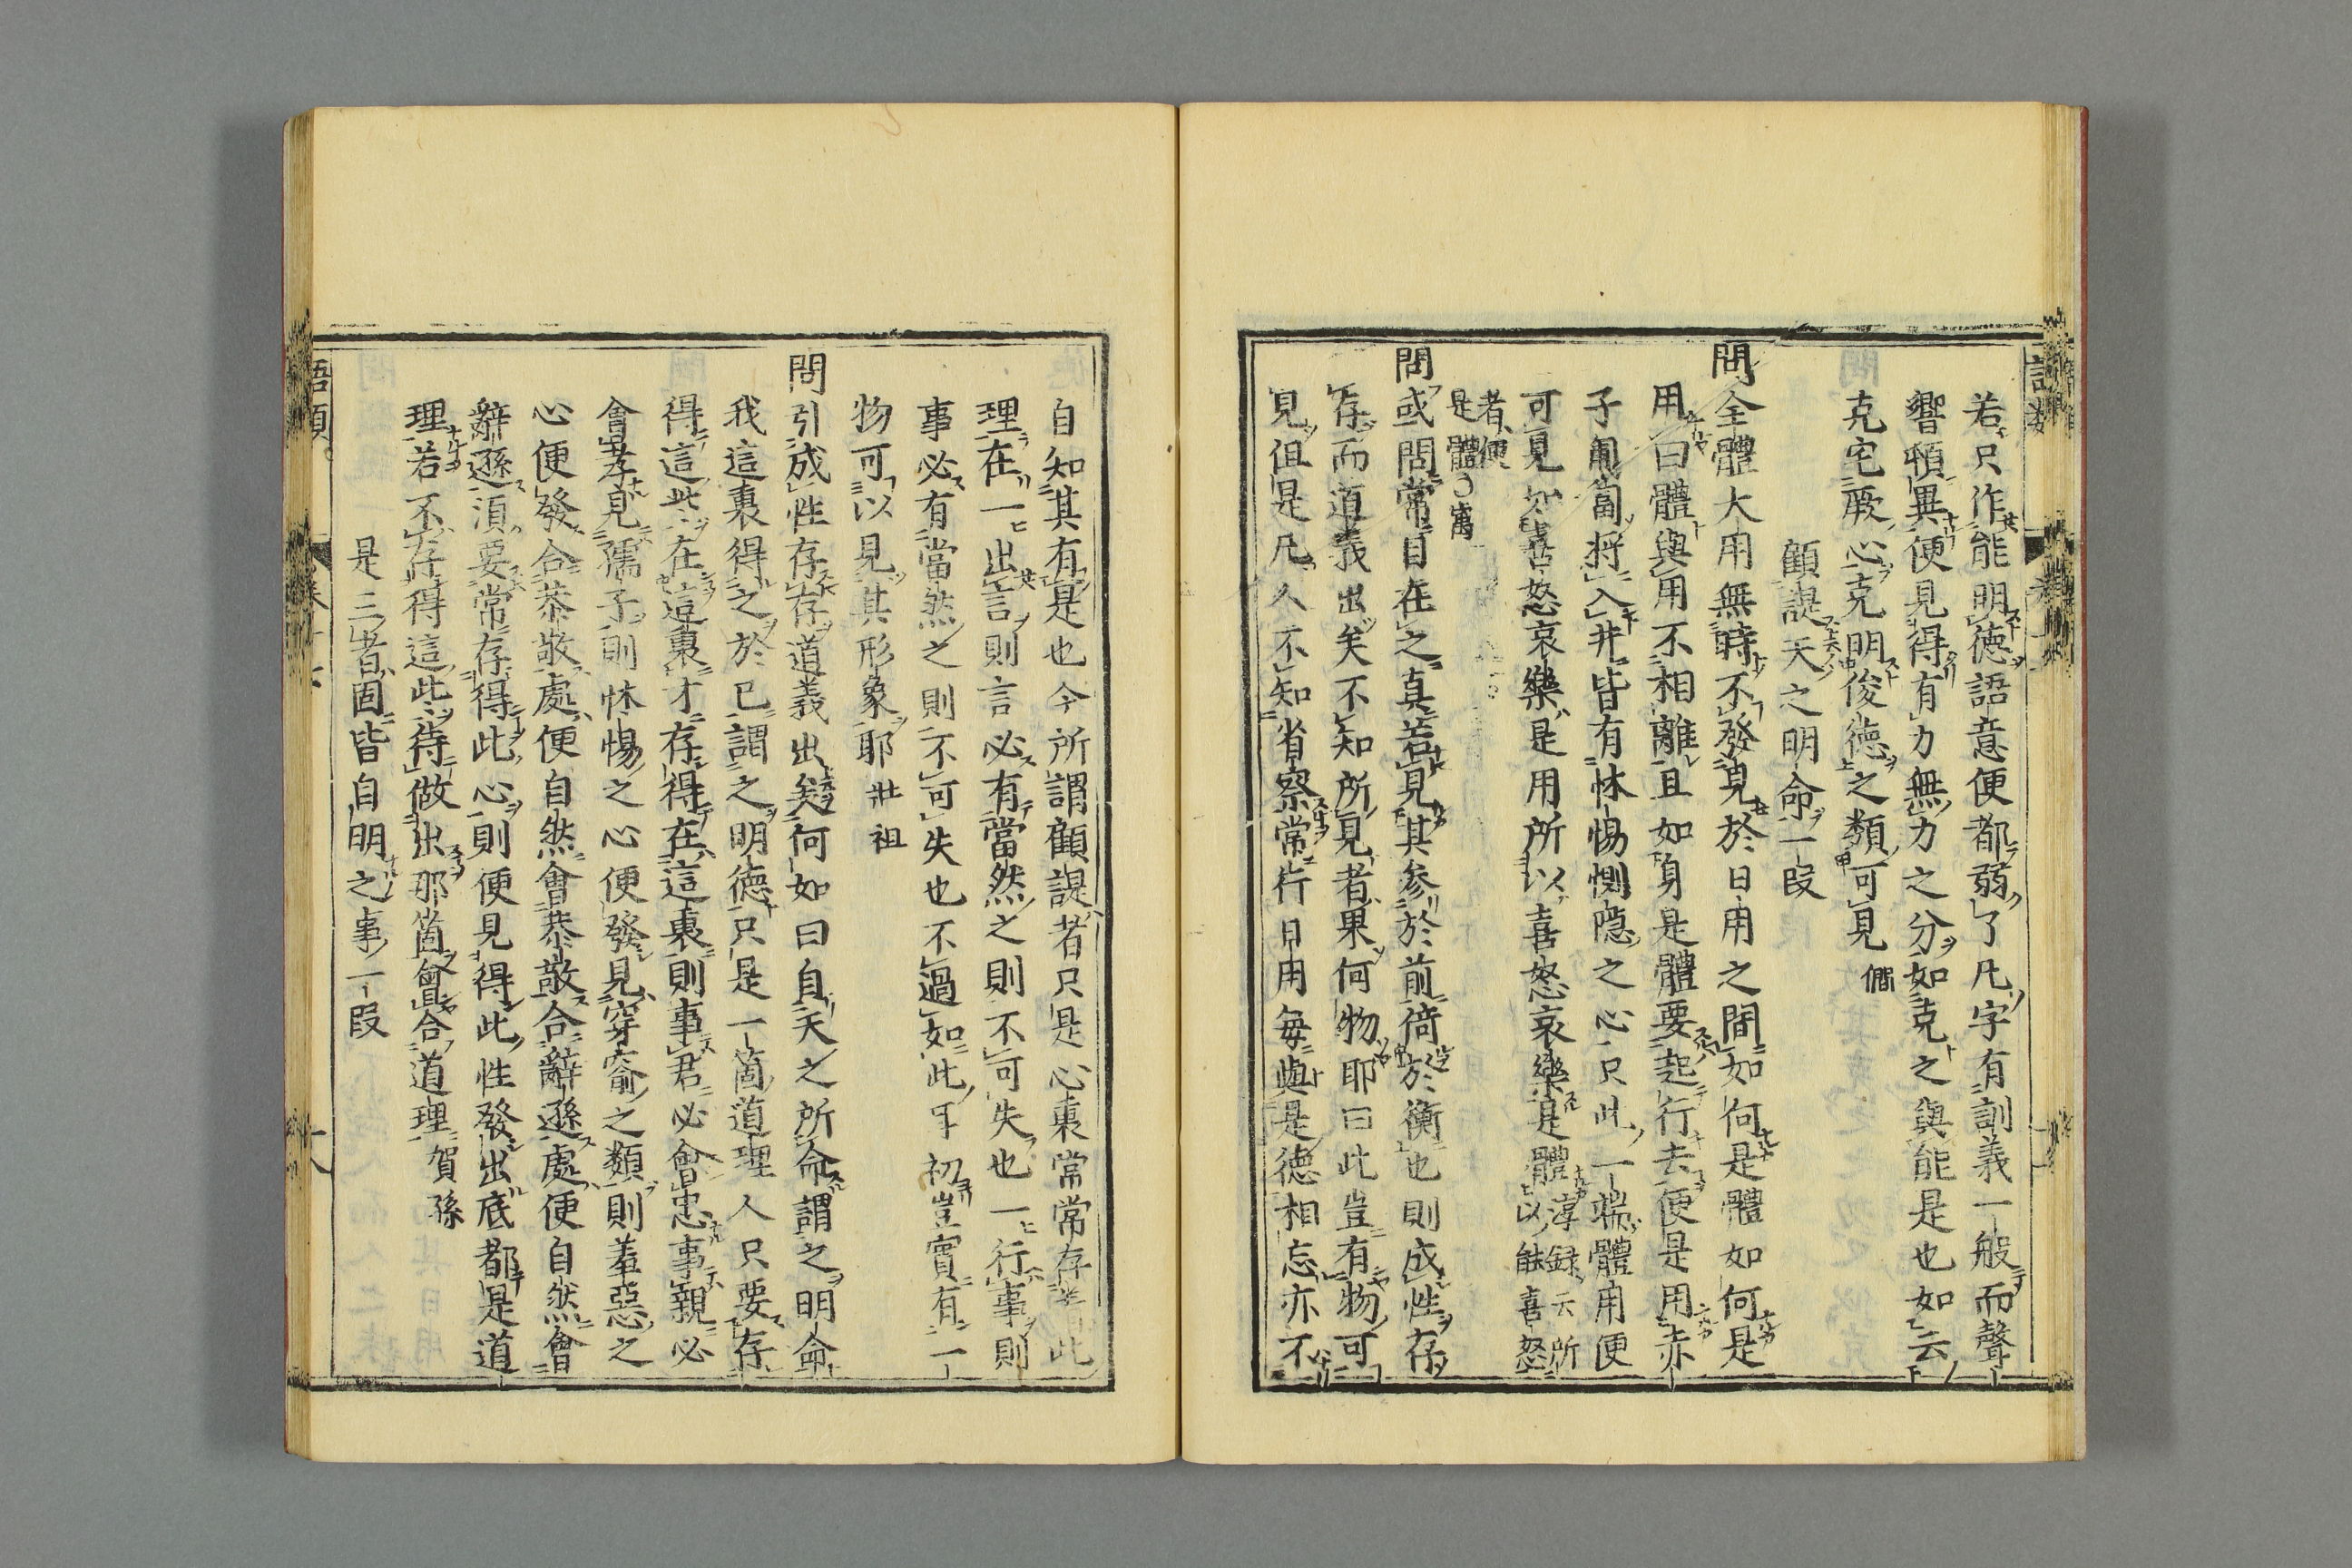 若只作能明德語意便都弱了凡字有訓義一般而聲
響頓異便見得有力無力之分如克之與能是也如云
克宅厥心克明俊德之類可見 僩
顧諟天之明命一段
問全體大用無時不發見於日用之間如何是體如何是
用曰體與用不相離且如身是體要起行去便是用赤
子匍匐將入井皆有怵惕惻隱之心只此一端體用便
可見如喜怒哀樂是用所以喜怒哀樂是體 淳録云所以能喜怒
者便是體○㝢
問或問常目在之真若見其参於前倚於衡也則成性存
存而道義出矣不知所見者果何物耶曰此豈有物可
見但是凡人不知省察常行日用每與是德相忘亦不
自知其有是也今所謂顧諟者只是心裏常常存著此
理在一出言則言必有當然之則不可失也一行事則
事必有當然之則不可失也不過如此耳初豈實有一
物可以見其形象耶 壯祖
問引成性存存道義出矣何如曰自天之所命謂之明命
我這裏得之於己謂之明德只是一箇道理人只要存
得這些在這裏才存得在這裏則事君必會忠事親必
會孝見孺子則怵惕之心便發見穿窬之類則羞惡之
心便發合恭敬處便自然會恭敬合辭遜處便自然會
辭遜須要常存得此心則便見得此性發出底都是道
理若不存得這些待做出那箇會合道理 賀孫
是三者固皆自明之事一段
語類